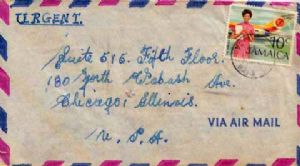 URGENT.
Suite 515. Fifth Floor.
180 North Wabash Ave.
Chicago, Illinois.
U. S. A.
10c
JAMAICA
VIA AIR MAIL